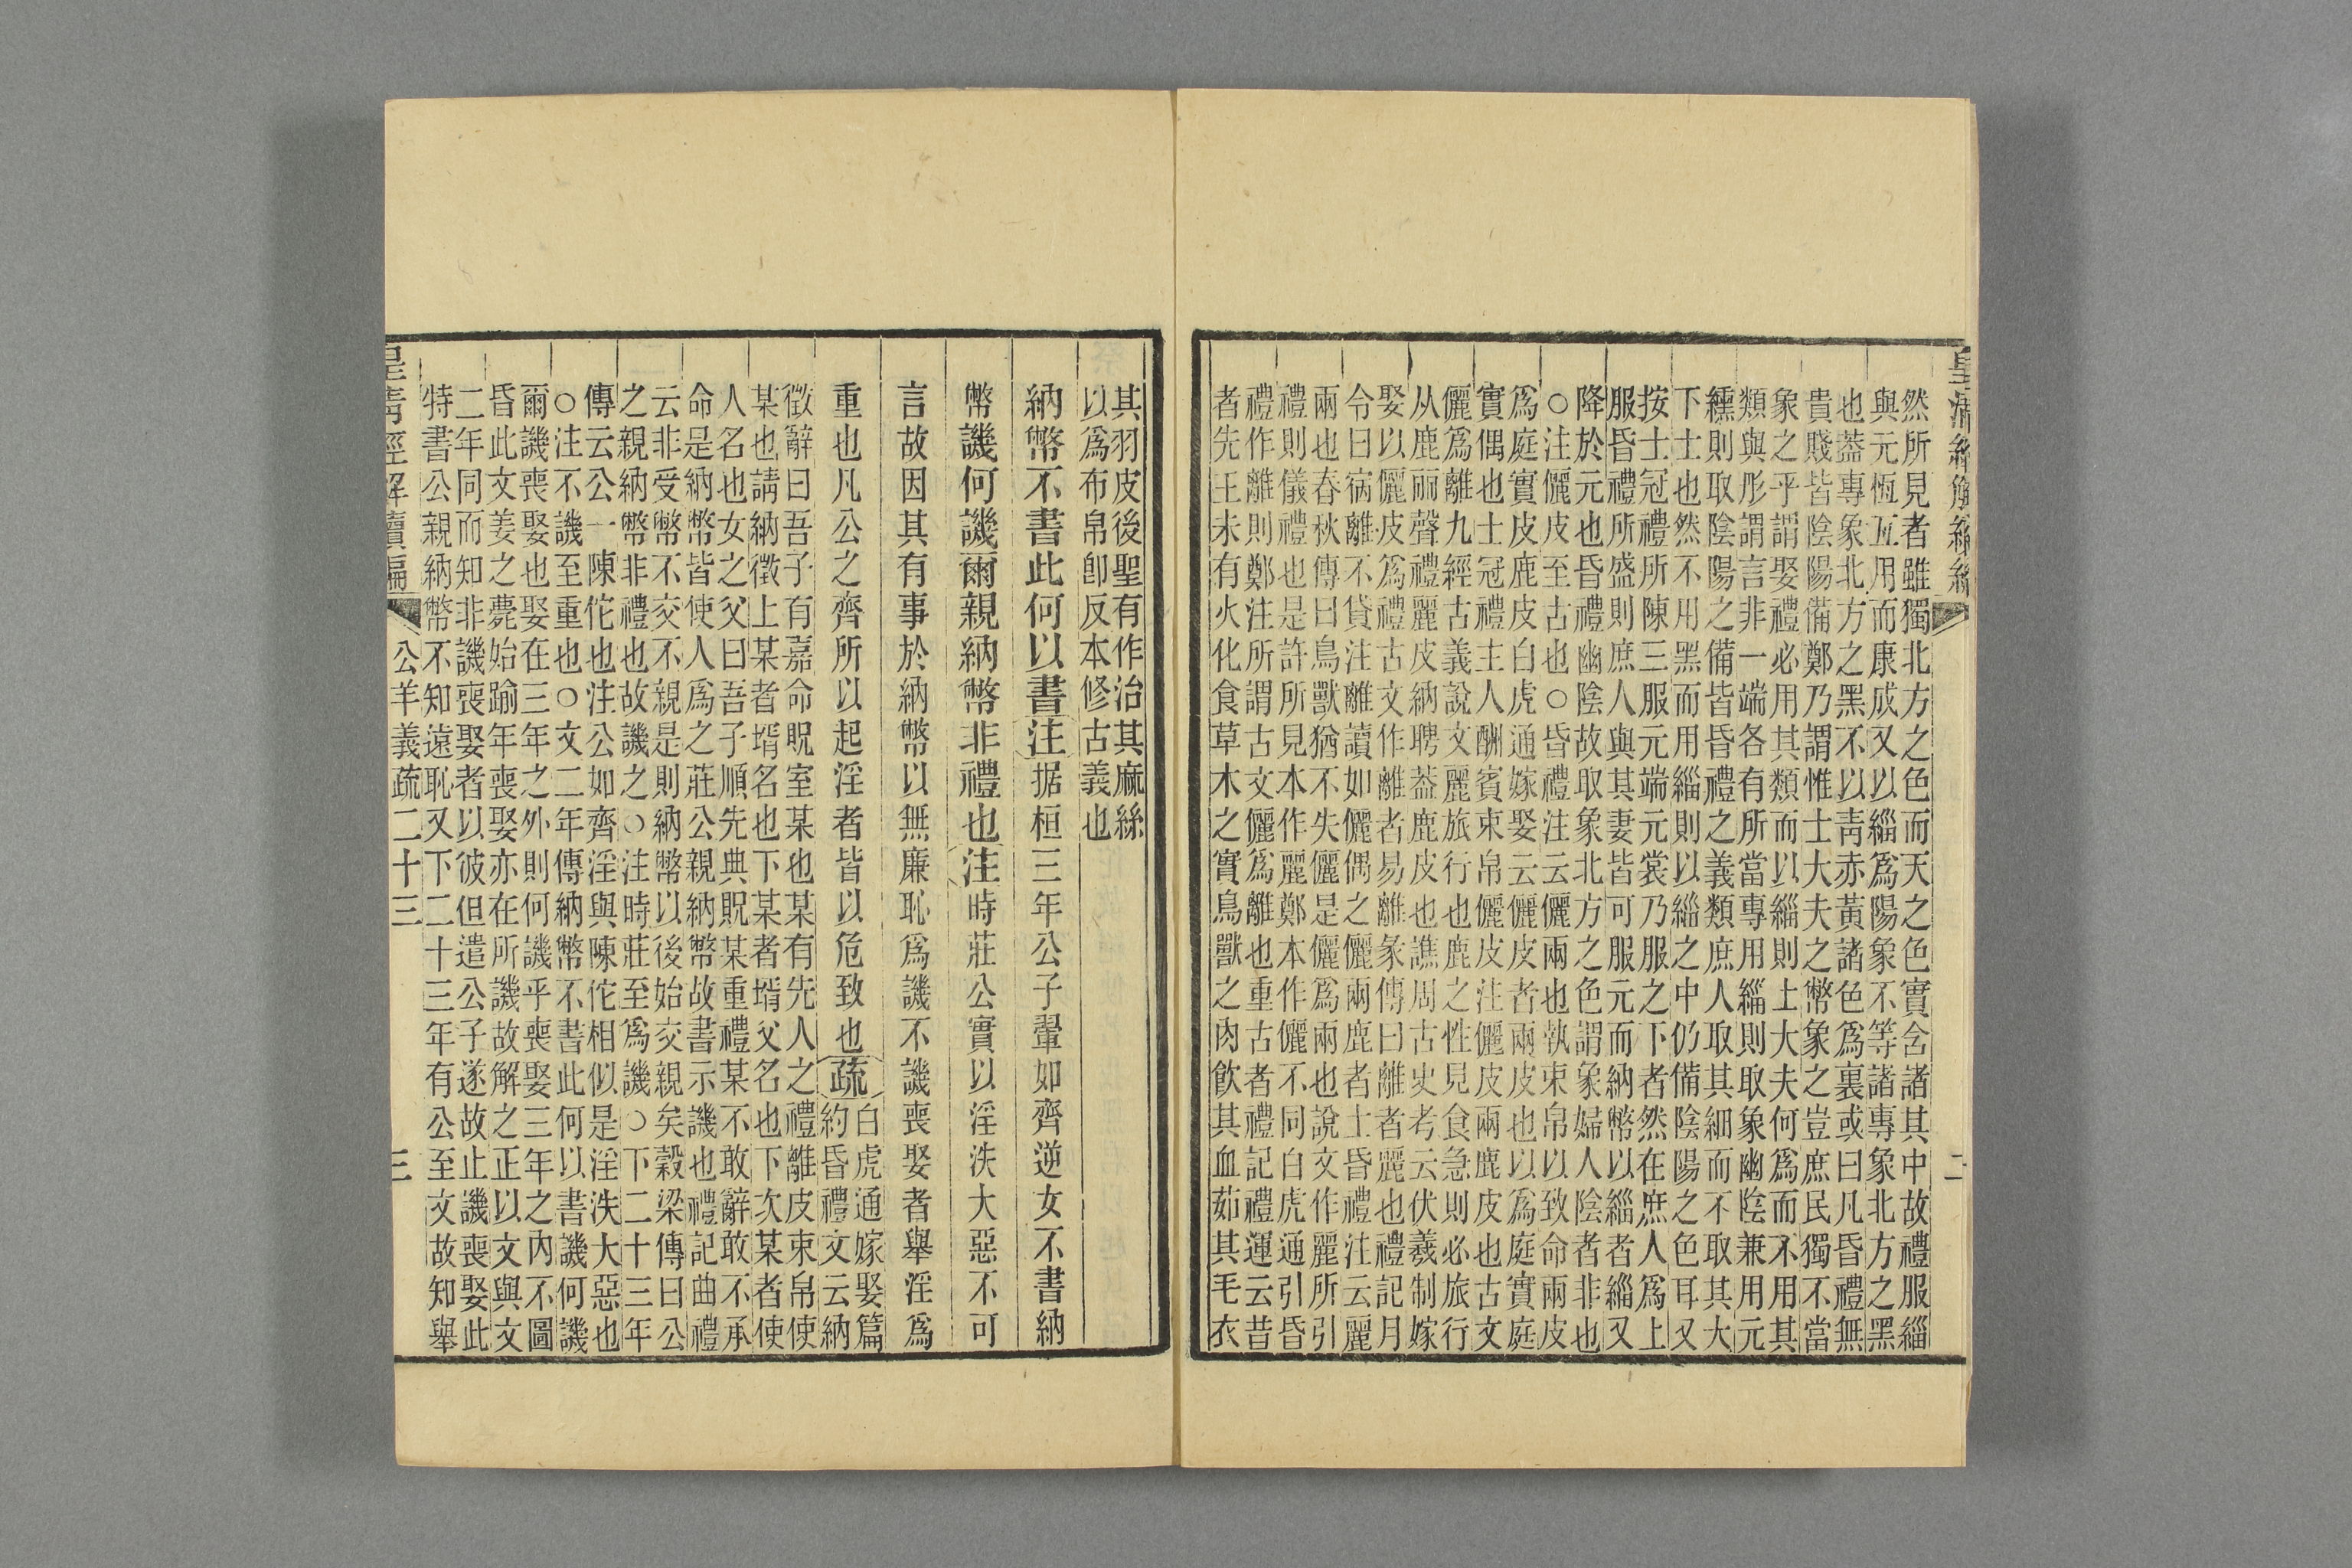 皇清經解續編 二
然所見者雖獨北方之色而天之色實含諸其中故禮服緇
與元恆互用而康成又以緇爲陽象不等諸專象北方之黑
也蓋專象北方之黑不以靑赤黃諸色爲裏或曰凡昏禮無
貴賤皆陰陽備鄭乃謂惟士大夫之幣象之豈庶民獨不當
象之乎謂娶禮必用其類而以緇則上大夫何爲而不用其
類與彤謂言非一端各有所當專用緇則取象幽陰兼用元
纁則取陰陽之備皆昏禮之義類庶人取其細而不取其大
下士也然不用黑而用緇則以緇之中仍備陰陽之色耳又
按士冠禮所陳三服元端元裳乃服之下者然在庶人爲上
服昏禮所盛則庶人與其妻皆可服元而納幣以緇者緇又
降於元也昏禮幽陰故取象北方之色謂象婦人陰者非也
○注儷皮至古也○昏禮注云儷兩也執束帛以致命兩皮
爲庭實皮鹿皮白虎通嫁娶云儷皮者兩皮也以爲庭實庭
實偶也士冠禮主人酬賓束帛儷皮注儷皮兩鹿皮也古文
儷爲離九經古義說文麗旅行也鹿之性見食急則必旅行
从鹿丽聲禮麗皮納聘蓋鹿皮也譙周古史考云伏羲制嫁
娶以儷皮爲禮古文作離者易離彖傳曰離者麗也禮記月
令曰宿離不貸注離讀如儷偶之儷兩鹿者士昏禮注云麗
兩也春秋傳曰鳥獸猶不失儷是儷爲兩也說文作麗所引
禮則儀禮也是許所見本作麗鄭本作儷不同白虎通引昏
禮作離則鄭注所謂古文儷爲離也重古者禮記禮運云昔
者先王未有火化食草木之實鳥獸之肉飮其血茹其毛衣
其羽皮後聖有作治其麻絲
以爲布帛卽反本修古義也
納幣不書此何以書注据桓三年公子翬如齊逆女不書納
幣譏何譏爾親納幣非禮也注時莊公實以淫泆大惡不可
言故因其有事於納幣以無廉恥爲譏不譏喪娶者舉淫爲
重也凡公之齊所以起淫者皆以危致也疏
白虎通嫁娶篇
約昏禮文云納
徵辭曰吾子有嘉命貺室某也某有先人之禮離皮束帛使
某也請納徵上某者壻名也下某者壻父名也下次某者使
人名也女之父曰吾子順先典貺某重禮某不敢辭敢不承
命是納幣皆使人爲之莊公親納幣故書示譏也禮記曲禮
云非受幣不交不親是則納幣以後始交親矣穀梁傳曰公
之親納幣非禮也故譏之○注時莊至爲譏○下二十三年
傳云公一陳佗也注公如齊淫與陳佗相似是淫泆大惡也
○注不譏至重也○文二年傳納幣不書此何以書譏何譏
爾譏喪娶也娶在三年之外則何譏乎喪娶三年之內不圖
昏此文姜之薨始踰年喪娶亦在所譏故解之正以文與文
二年同而知非譏喪娶者以彼但遣公子遂故止譏喪娶此
特書公親納幣不知遠恥又下二十三年有公至文故知舉
皇淸經解續編 公羊義疏二十三 三